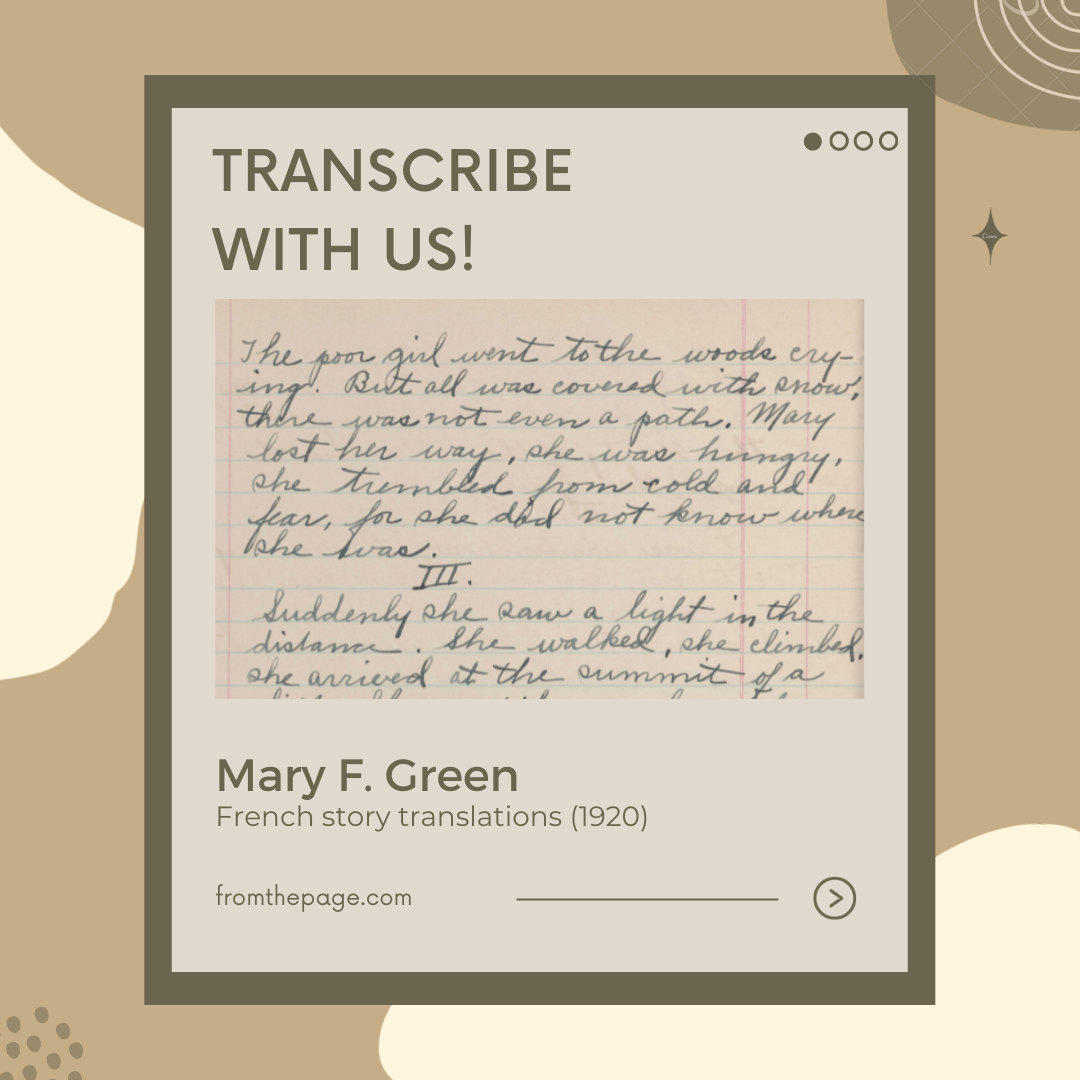 TRANSCRIBE
WITH US!
The poor girl went to the woods cry-
ing. But all was covered with snow,
there was not even a path. Mary
lost her way, she was hungry,
she trembled from cold and
fear, for she did not know where
she was.
III.
Suddenly she saw a light in the
distance. She walked, she climbed,
she arrived at the summit of a
Mary F. Green
French story translations (1920)
fromthepage.com